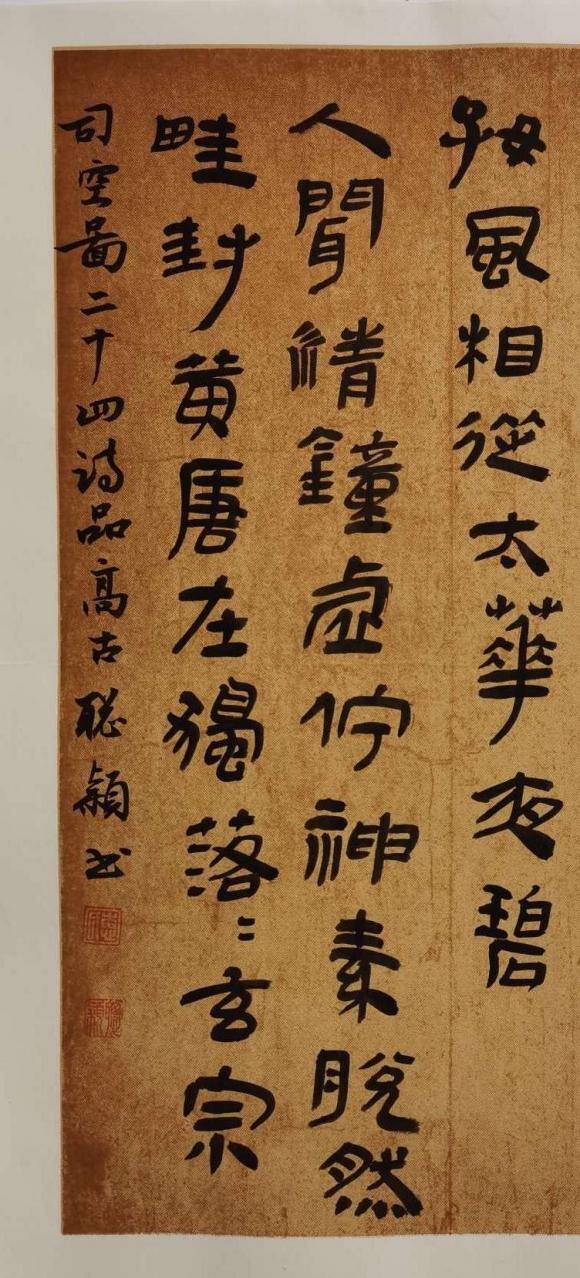 好風相從太華夜碧
人聞清鐘虛佇神素脫然
畦封黃唐在獨落〻玄宗
司空圖二十四詩品高古聰穎书